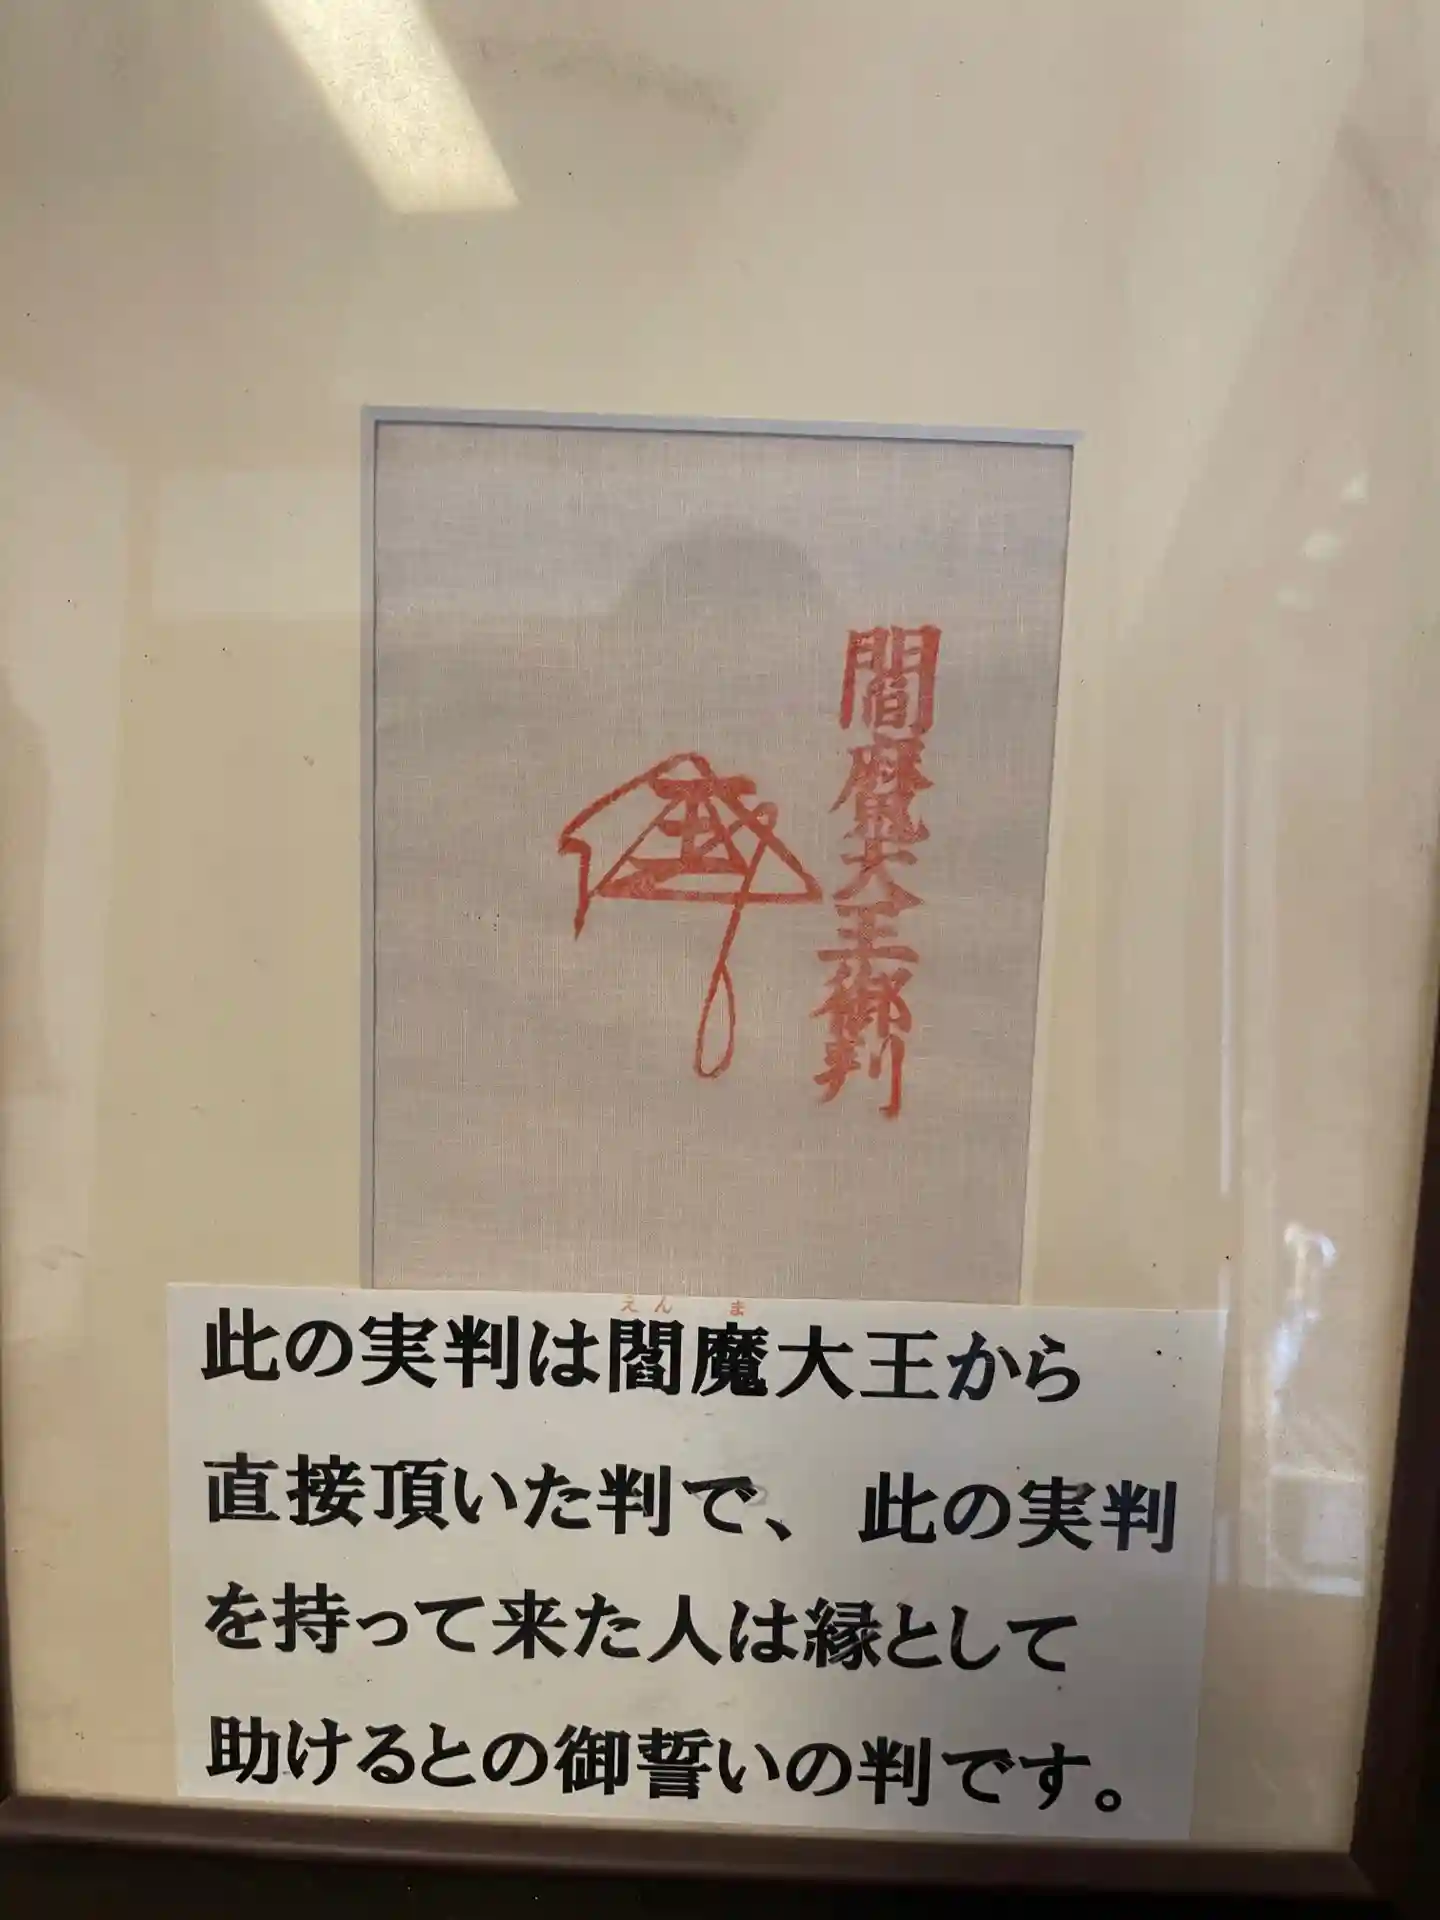 閻魔大王御判
えんま
此の実判は閻魔大王から
直接頂いた判で、此の実判
を持って来た人は縁として
助けるとの御誓いの判です。